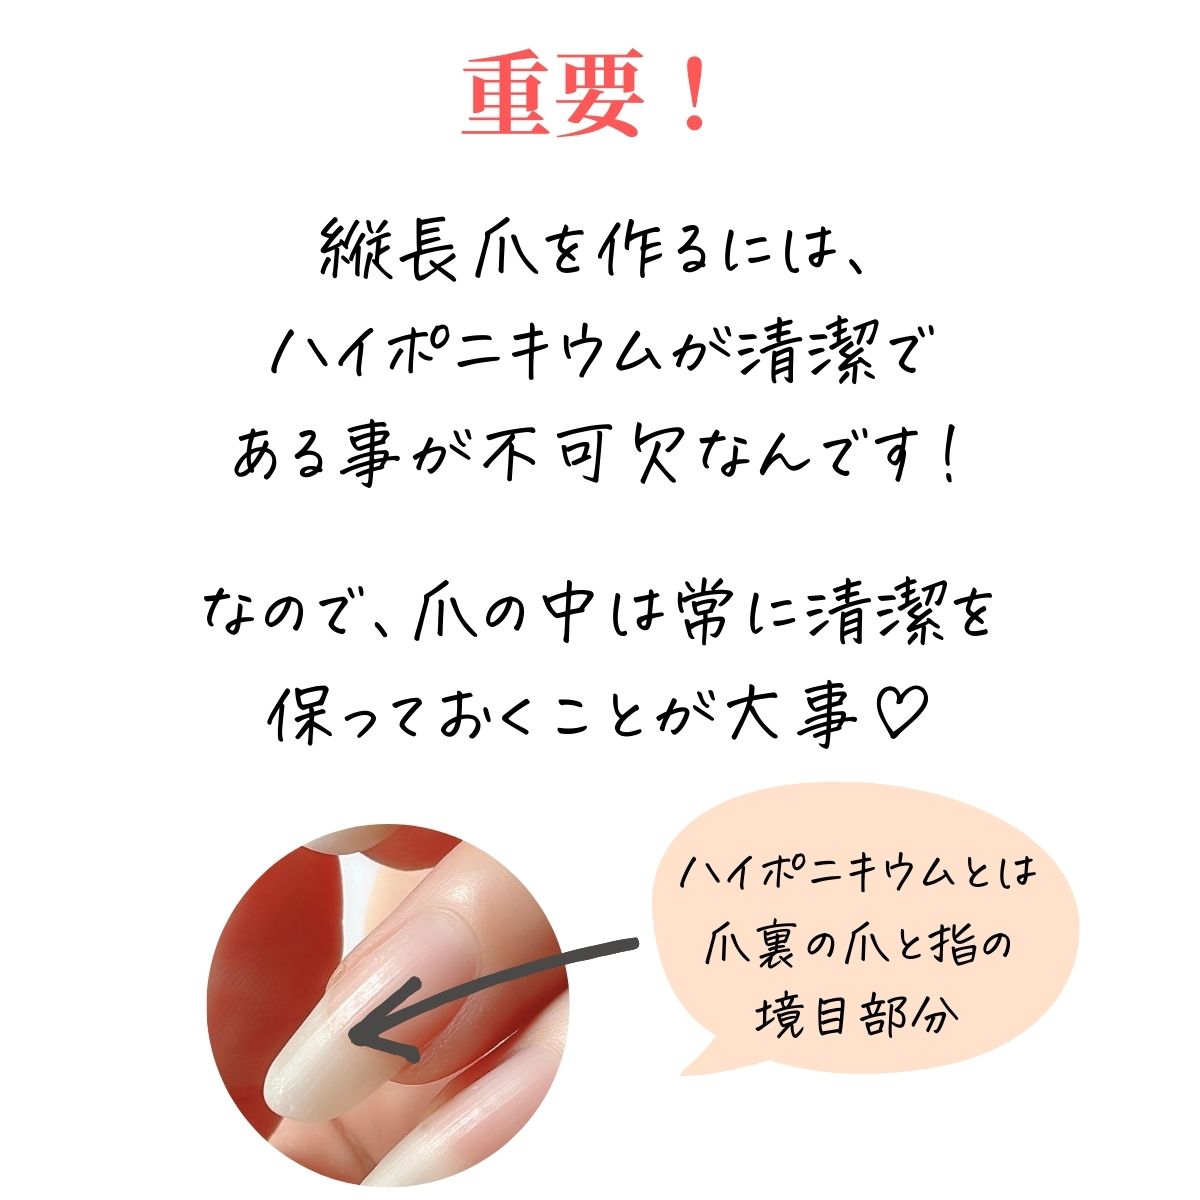 重要！
縦長爪を作るには、
ハイポニキウムが清潔で
ある事が不可欠なんです！
なので、爪の中は常に清潔を
保っておくことが大事♡
ハイポニキウムとは
爪裏の爪と指の
境目部分